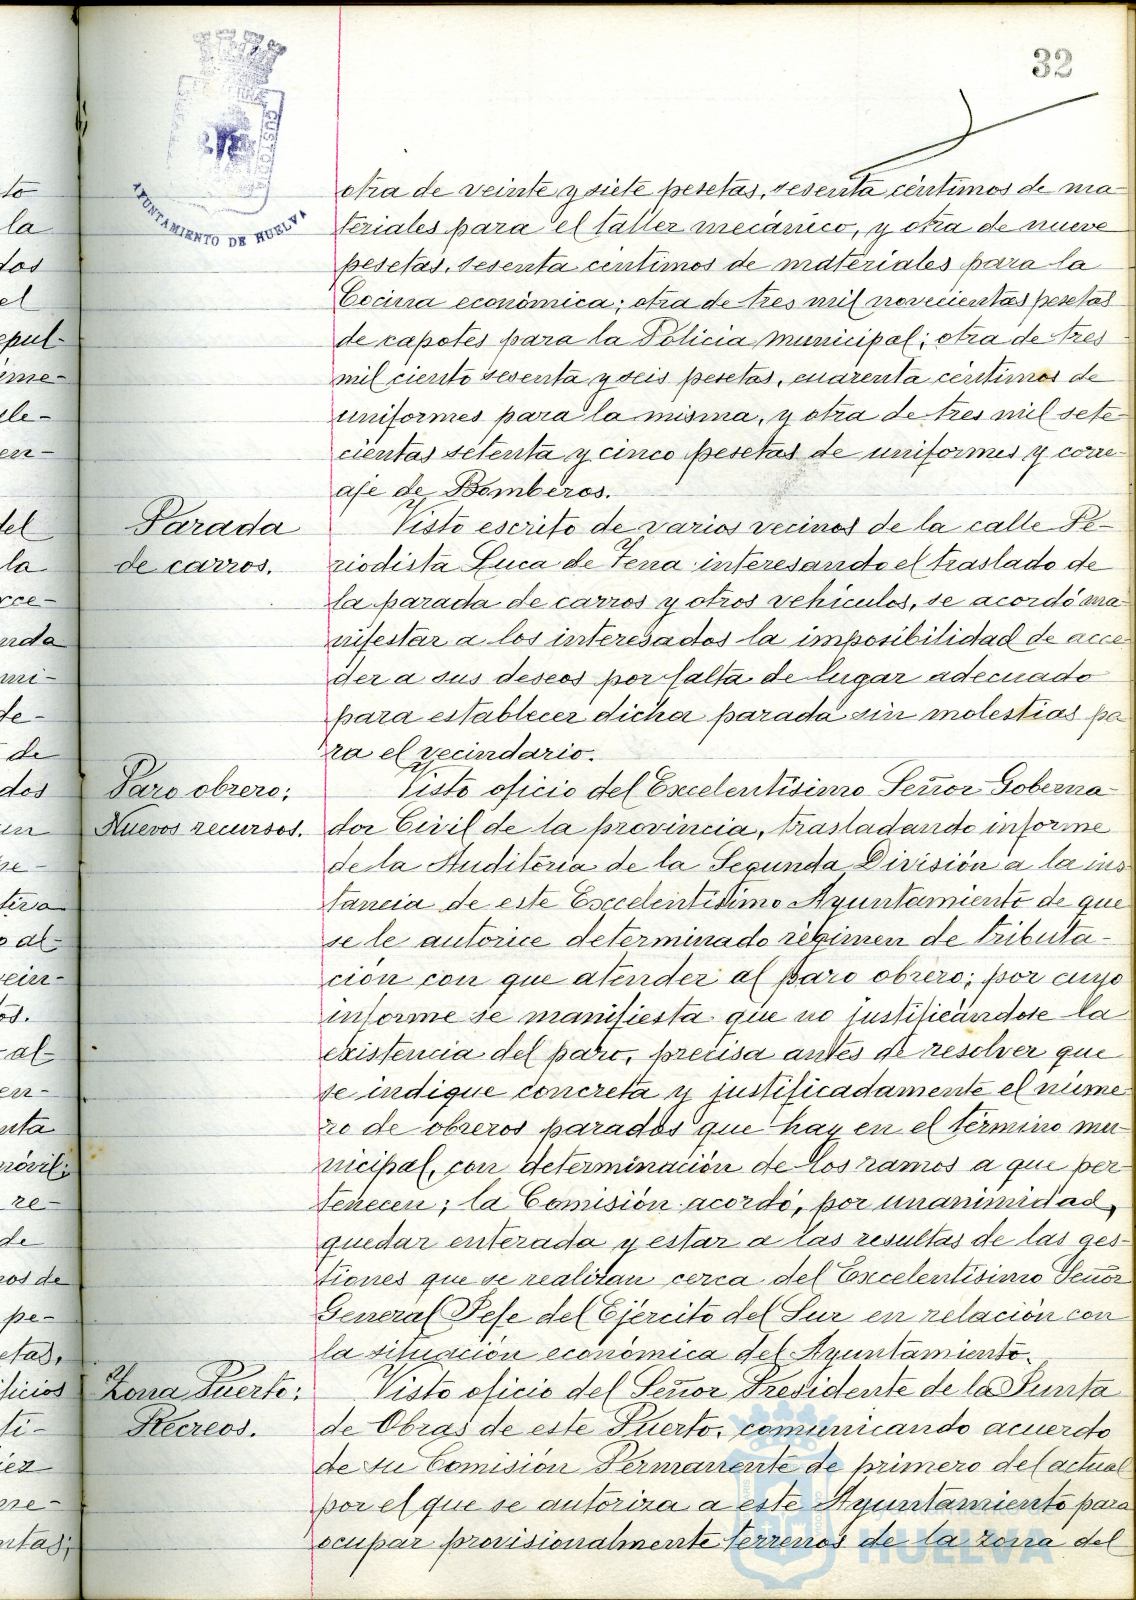 32
AYUNTAMIENTO DE HUELVA
otra de veinte y siete pesetas, sesenta céntimos de ma-
teriales para el taller mecánico, y otra de nueve
pesetas, sesenta céntimos de materiales para la
Cocina económica; otra de tres mil novecientas pesetas
de capotes para la Policia municipal; otra de tres
mil ciento sesenta y seis pesetas, cuarenta céntimos de
uniformes para la misma, y otra de tres mil sete-
cientas setenta y cinco pesetas de uniformes y corre-
aje de Bomberos.
Parada
de carros.
Visto escrito de varios vecinos de la calle Pe-
riodista Luca de Tena interesando el traslado de
la parada de carros y otros vehículos, se acordó ma
nifestar a los interesados la imposibilidad de acce
der a sus deseos por falta de lugar adecuado
para establecer dicha parada sin molestias pa
ra el vecindario.
Paro obrero;
Nuevos recursos.
Visto oficio del Excelentísimo Señor Goberna-
dor Civil de la provincia, trasladando informe
de la Auditoria de la Segunda División a la ins
tancia de este Excelentísimo Ayuntamiento de que
se le autorice determinado régimen de tributa-
ción con que atender al paro obrero; por cuyo
informe se manifiesta que no justificándose la
existencia del paro, precisa antes de resolver que
se indique concreta y justificadamente el núme
ro de obreros parados que hay en el término mu-
nicipal, con determinación de los ramos a que per
tenecen; la Comisión acordó, por unanimidad,
quedar enterada y estar a las resultas de las ges-
tiones que se realizan cerca del Excelentísimo Señor
General Jefe del Ejército del Sur en relación con
la situación económica del Ayuntamiento.
Zona Puerto;
Recreos.
Visto oficio del Señor Presidente de la Junta
de Obras de este Puerto, comunicando acuerdo
de su Comisión Permanente de primero del actual
por el que se autoriza a este Ayuntamiento para
ocupar provisionalmente terrenos de la zona del
Ayuntamiento de
HUELVA